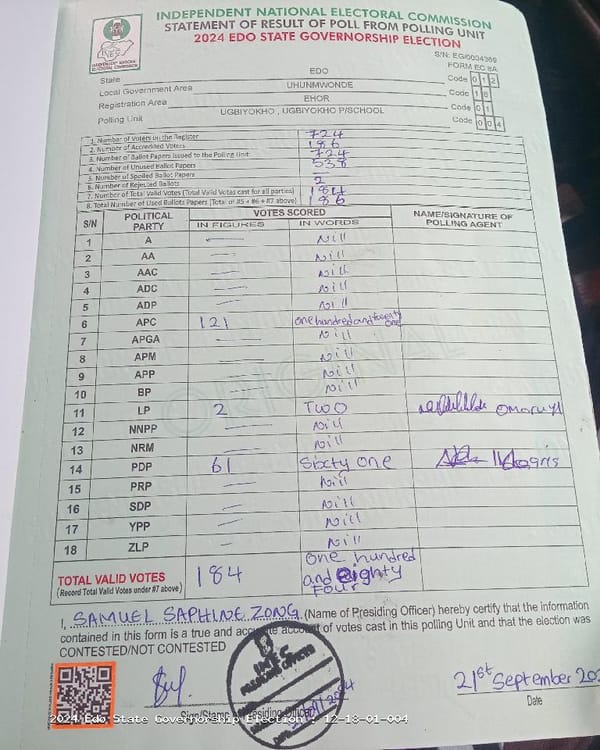 INDEPENDENT NATIONAL ELECTORAL COMMISSION
STATEMENT OF RESULT OF POLL FROM POLLING UNIT
2024 EDO STATE GOVERNORSHIP ELECTION
S/N: EG/0004369
FORM EC 8A
State EDO Code 0 1 2
Local Government Area UHUNMWONDE Code 1 8
Registration Area EHOR Code 0 1
Polling Unit UGBIYOKHO , UGBIYOKHO P/SCHOOL Code 0 0 4
1. Number of Voters on the Register 724
2. Number of Accredited Voters 186
3. Number of Ballot Papers Issued to the Polling Unit 724
4. Number of Unused Ballot Papers 538
5. Number of Spoiled Ballot Papers —
6. Number of Rejected Ballots 2
7. Number of Total Valid Votes (Total Valid Votes cast for all parties) 184
8. Total Number of Used Ballots Papers (Total of #5 + #6 + #7 above) 186
S/N POLITICAL PARTY VOTES SCORED NAME/SIGNATURE OF POLLING AGENT
IN FIGURES IN WORDS
1 A — Nill
2 AA — Nill
3 AAC — Nill
4 ADC — Nill
5 ADP — Nill
6 APC 121 one hundred and twenty one
7 APGA — Nill
8 APM — Nill
9 APP — Nill
10 BP — Nill
11 LP 2 Two Omoruyi
12 NNPP — Nill
13 NRM — Nill
14 PDP 61 Sixty one
15 PRP — Nill
16 SDP — Nill
17 YPP — Nill
18 ZLP — Nill
TOTAL VALID VOTES 184 One hundred and Eighty Four
(Record Total Valid Votes under #7 above)
I, SAMUEL SAPHINE ZONG (Name of Presiding Officer) hereby certify that the information
contained in this form is a true and accurate account of votes cast in this polling Unit and that the election was
CONTESTED/NOT CONTESTED
21st September 202
Sign/Stamp Presiding Officer Date
INEC
PRESIDING OFFICER
2024 Edo State Governorship Election : 12-18-01-004